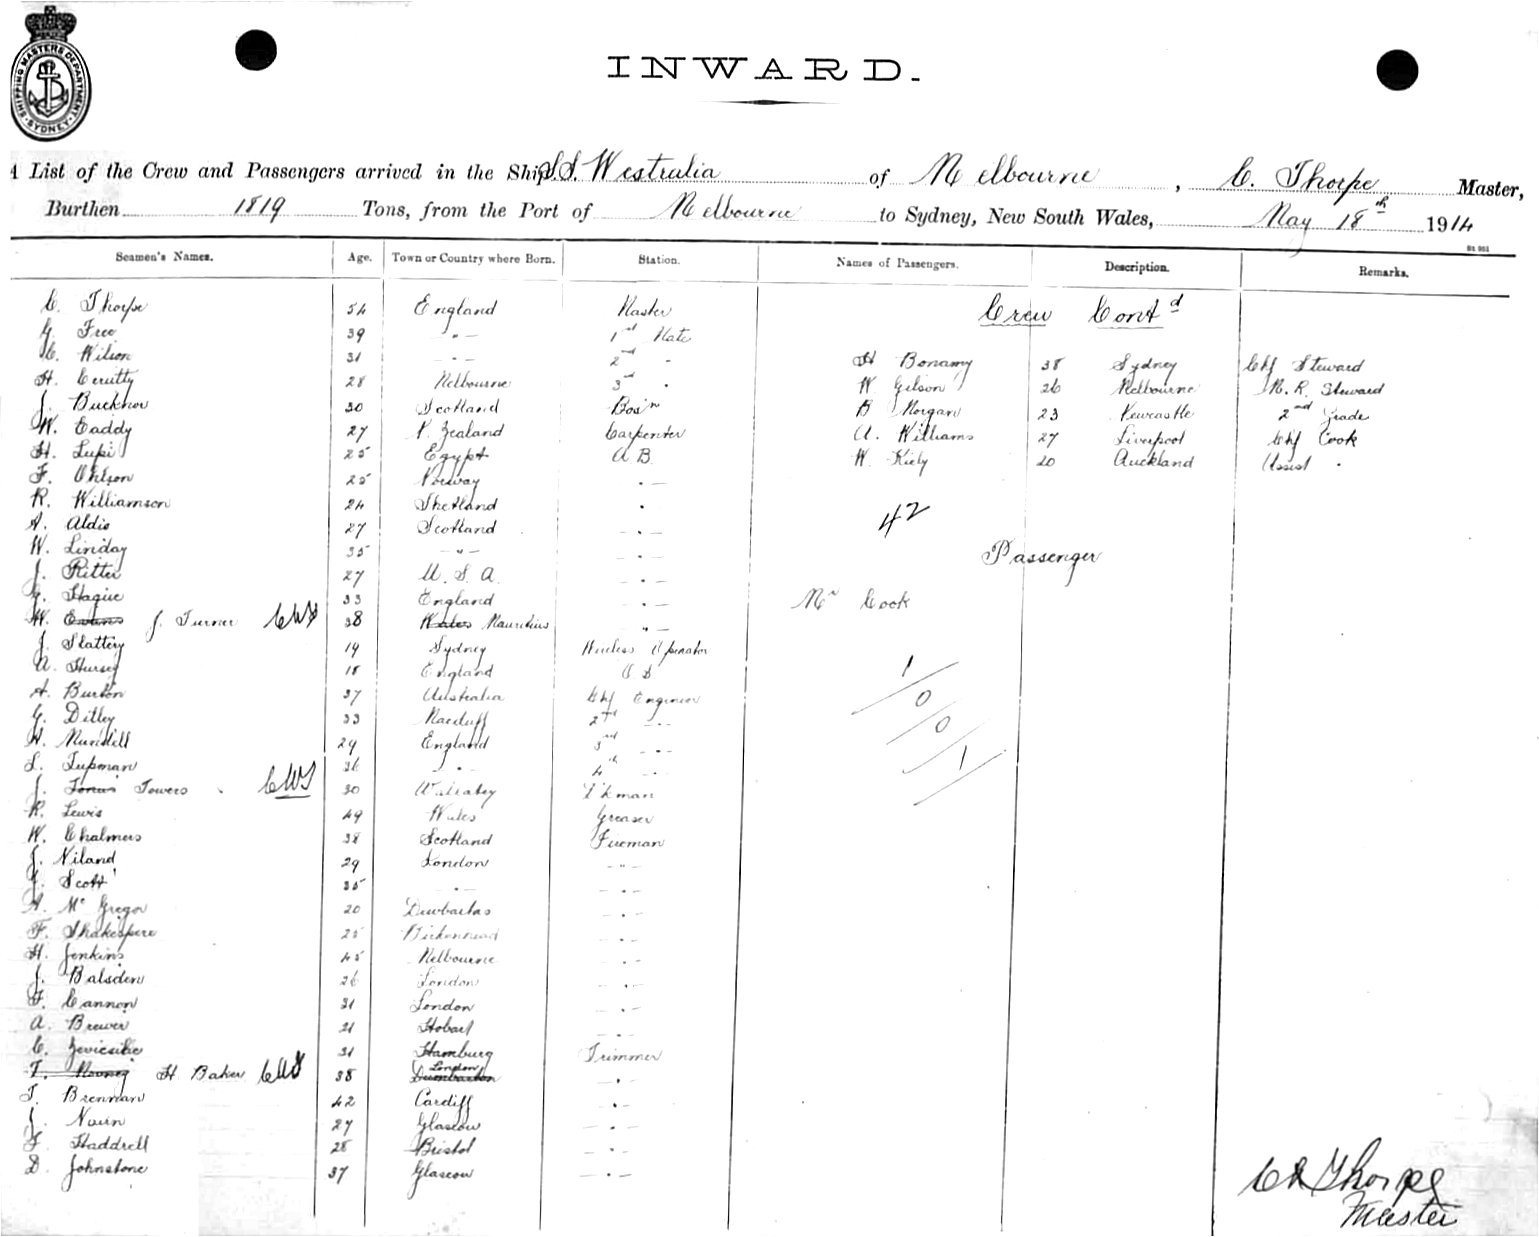 SHIPPING MASTERS DEPARTMENT SYDNEY
INWARD.
A List of the Crew and Passengers arrived in the Ship S.S. Westralia of Melbourne, C. Thorpe Master,
Burthen 1819 Tons, from the Port of Melbourne to Sydney, New South Wales, May 18th 1914
Seamen's Names. Age. Town or Country where Born. Station. Names of Passengers. Description. Remarks.
C. Thorpe 54 England Master
G. Free 39 - " - 1st Mate
C. Wilson 31 - " - 2nd "
H. Cerutty 28 Melbourne 3rd "
J. Buckner 30 Scotland Bos'n
W. Eaddy 27 N. Zealand Carpenter
H. Lupi 25 Egypt A B
F. Ohlson 25 Norway " -
R. Williamson 24 Shetland "
A. Aldis 27 Scotland - " -
W. Linday 35 - " - - " -
J. Ritter 27 U. S. A. - " -
G. Hague 33 England - " -
W. Evans J. Turner CWT 38 Wales Mauritius - " -
J. Slattery 19 Sydney Wireless Operator
A. Hursey 18 England O S
A. Burton 37 Australia Chf Engineer
G. Dilley 33 Macduff 2nd - " -
H. Mundell 29 England 3rd - " -
L. Tupman 36 - " - 4th - " -
J. Towers CWT 30 D'kman
R. Lewis 49 Wales Greaser
W. Chalmers 38 Scotland Fireman
J. Niland 29 London - " -
J. Scott 35 - " - - " -
A. McGregor 20 - " -
F. Shakespere 25 Birkenhead - " -
H. Jenkins 45 Melbourne - " -
J. Balsden 26 London - " -
F. Cannon 31 London - " -
A. Brewer 21 Hobart - " -
C. 31 Hamburg Trimmer
T. Mooney H Baker CWT 38 Dumbarton London - " -
T. Brennan 42 Cardiff - " -
J. Nairn 27 Glascow - " -
F. Haddrell 28 Bristol - " -
D. Johnstone 37 Glascow - " -
Crew Contd
H Bonamy 38 Sydney Chf Steward
W Gilson 26 Melbourne M. R. Steward
B Morgan 23 Newcastle 2nd Grade
A. Williams 27 Liverpool Chf Cook
W. Kiely 20 Auckland Assist "
42
Passenger
Mr Cook
1/0/0/1/
C R Thorpe
Master